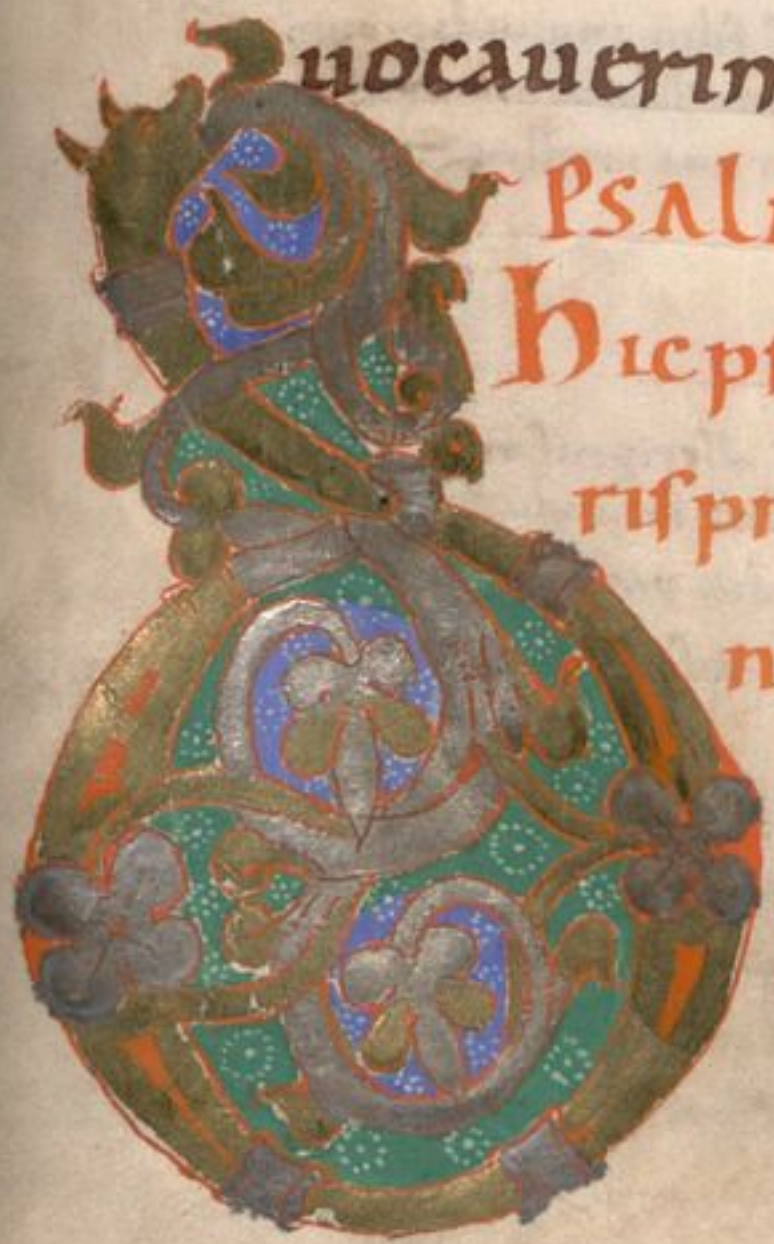 uocauerin
Psal
hicps
rispr
n